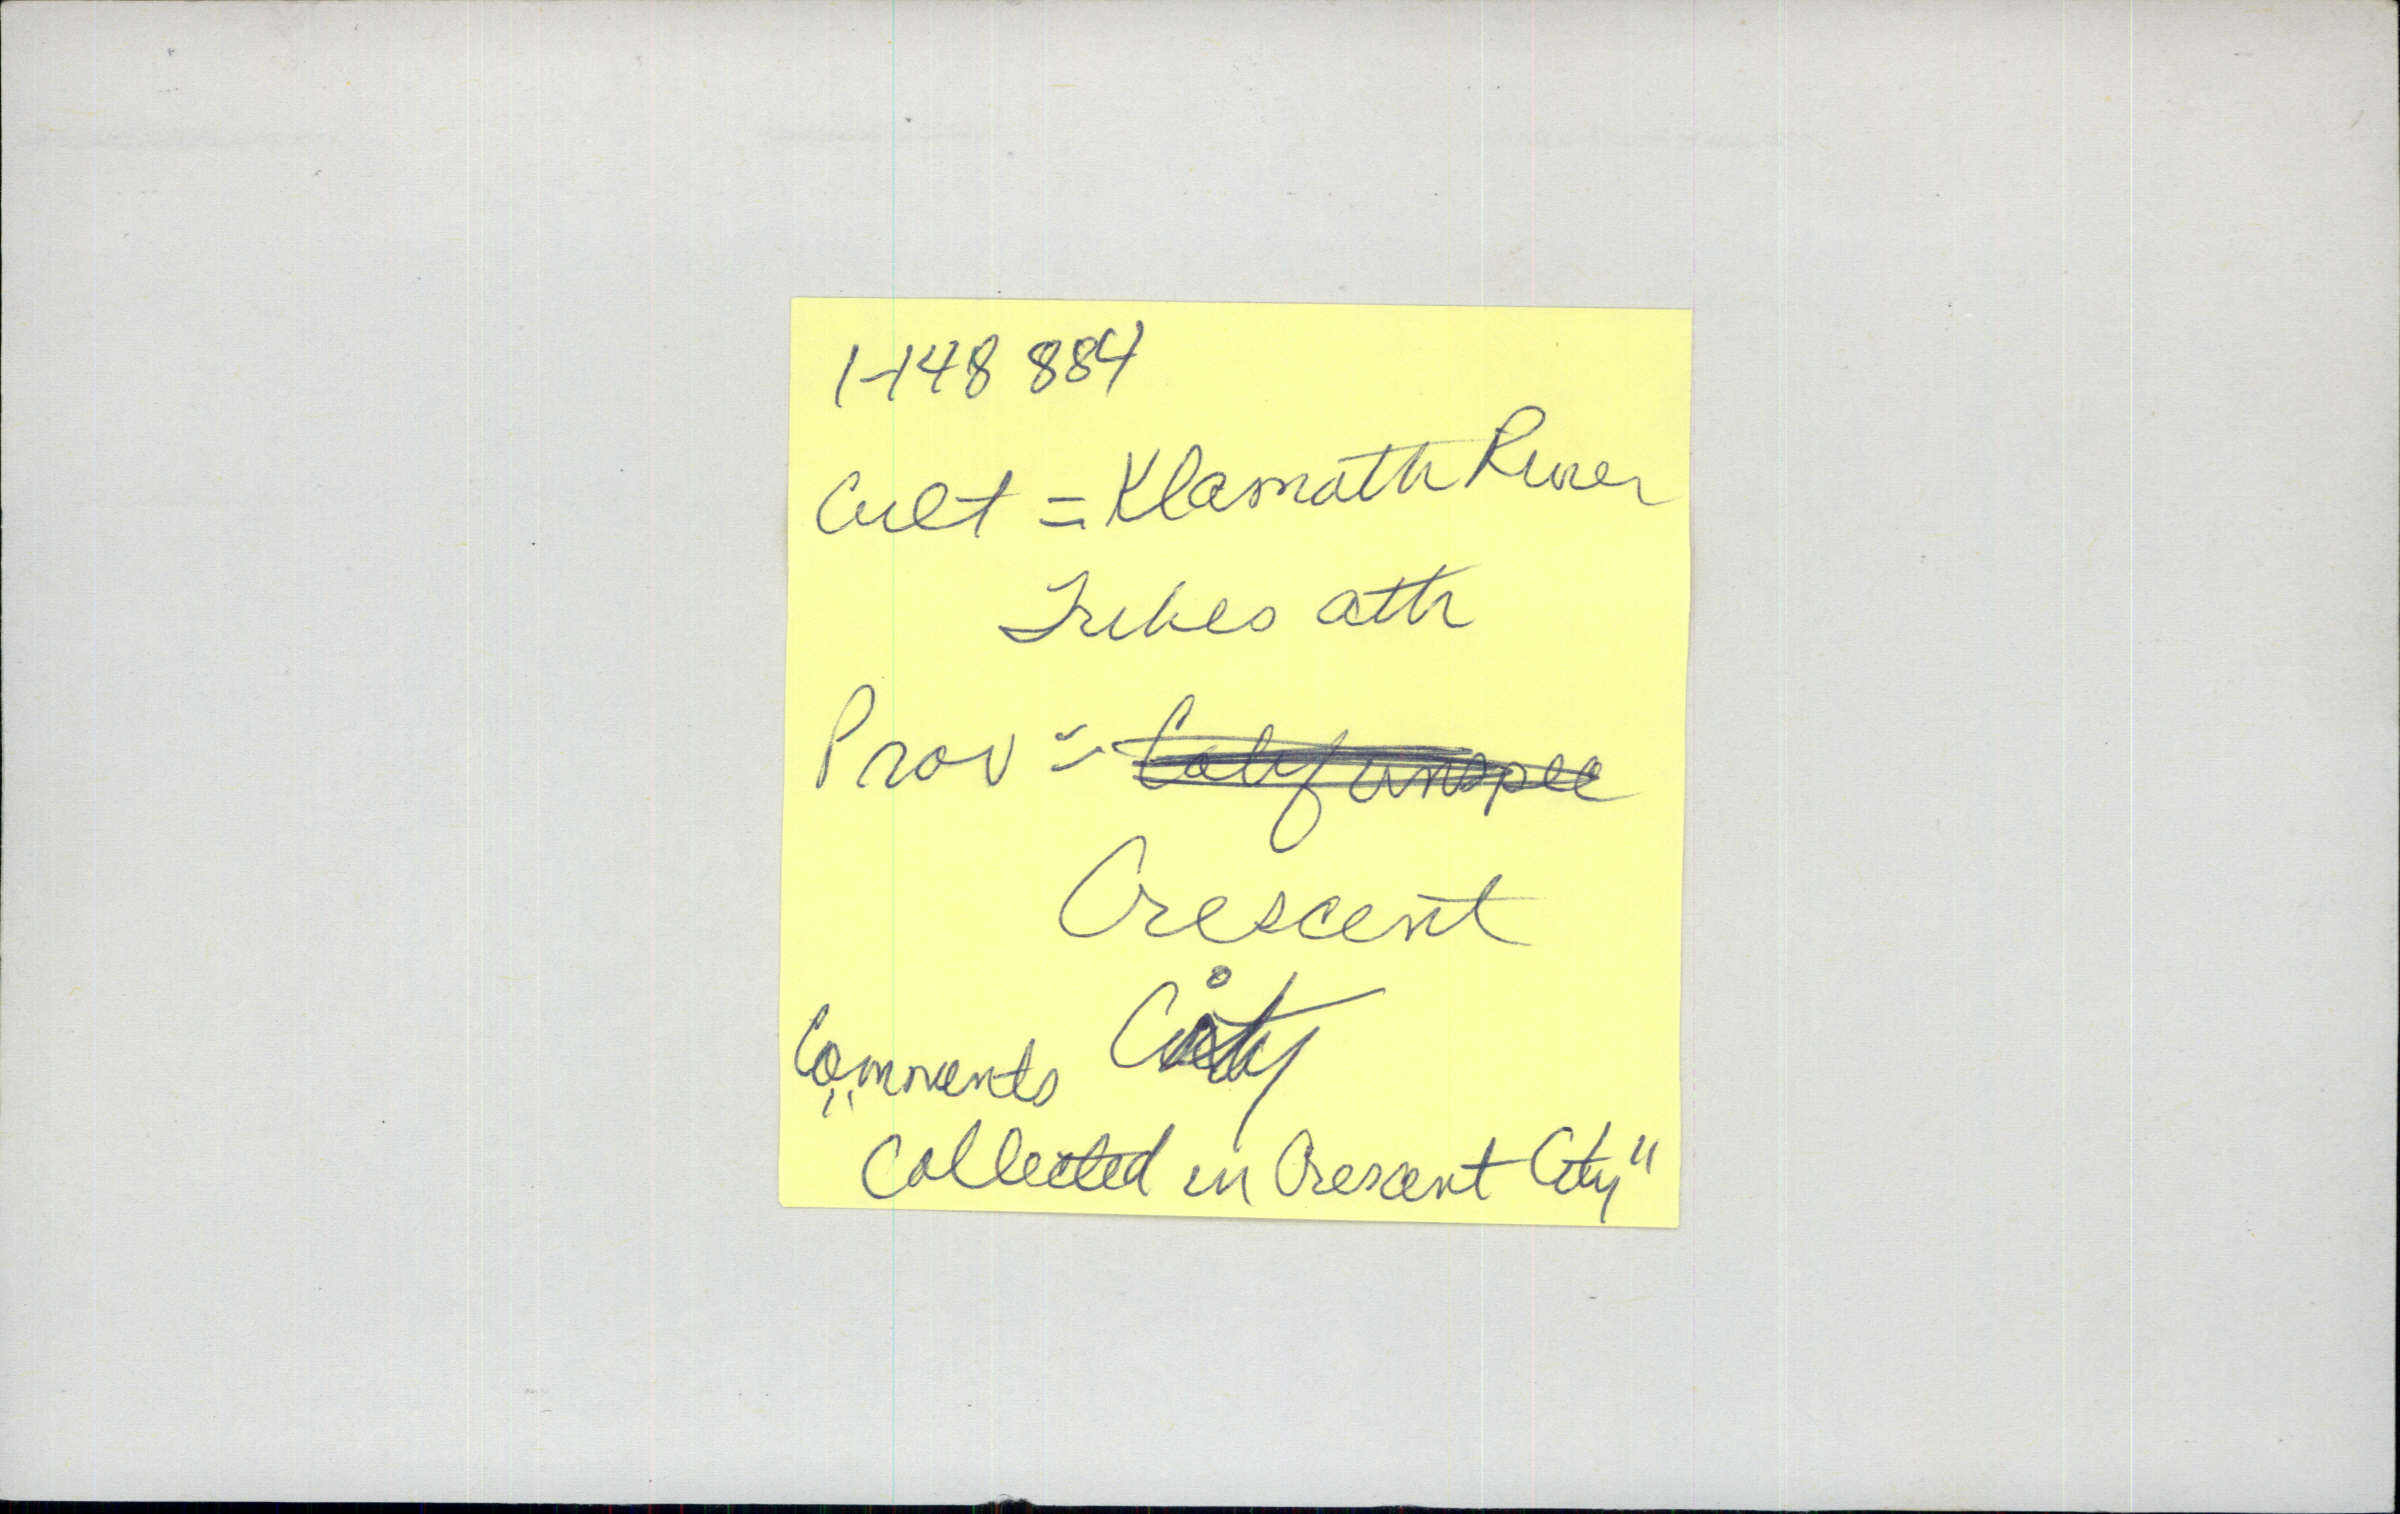 1-148 884
Cult = Klamath River
Tribes attr
Prov = Calif unspec
Crescent
City
Comments
"Collected in Crescent City"